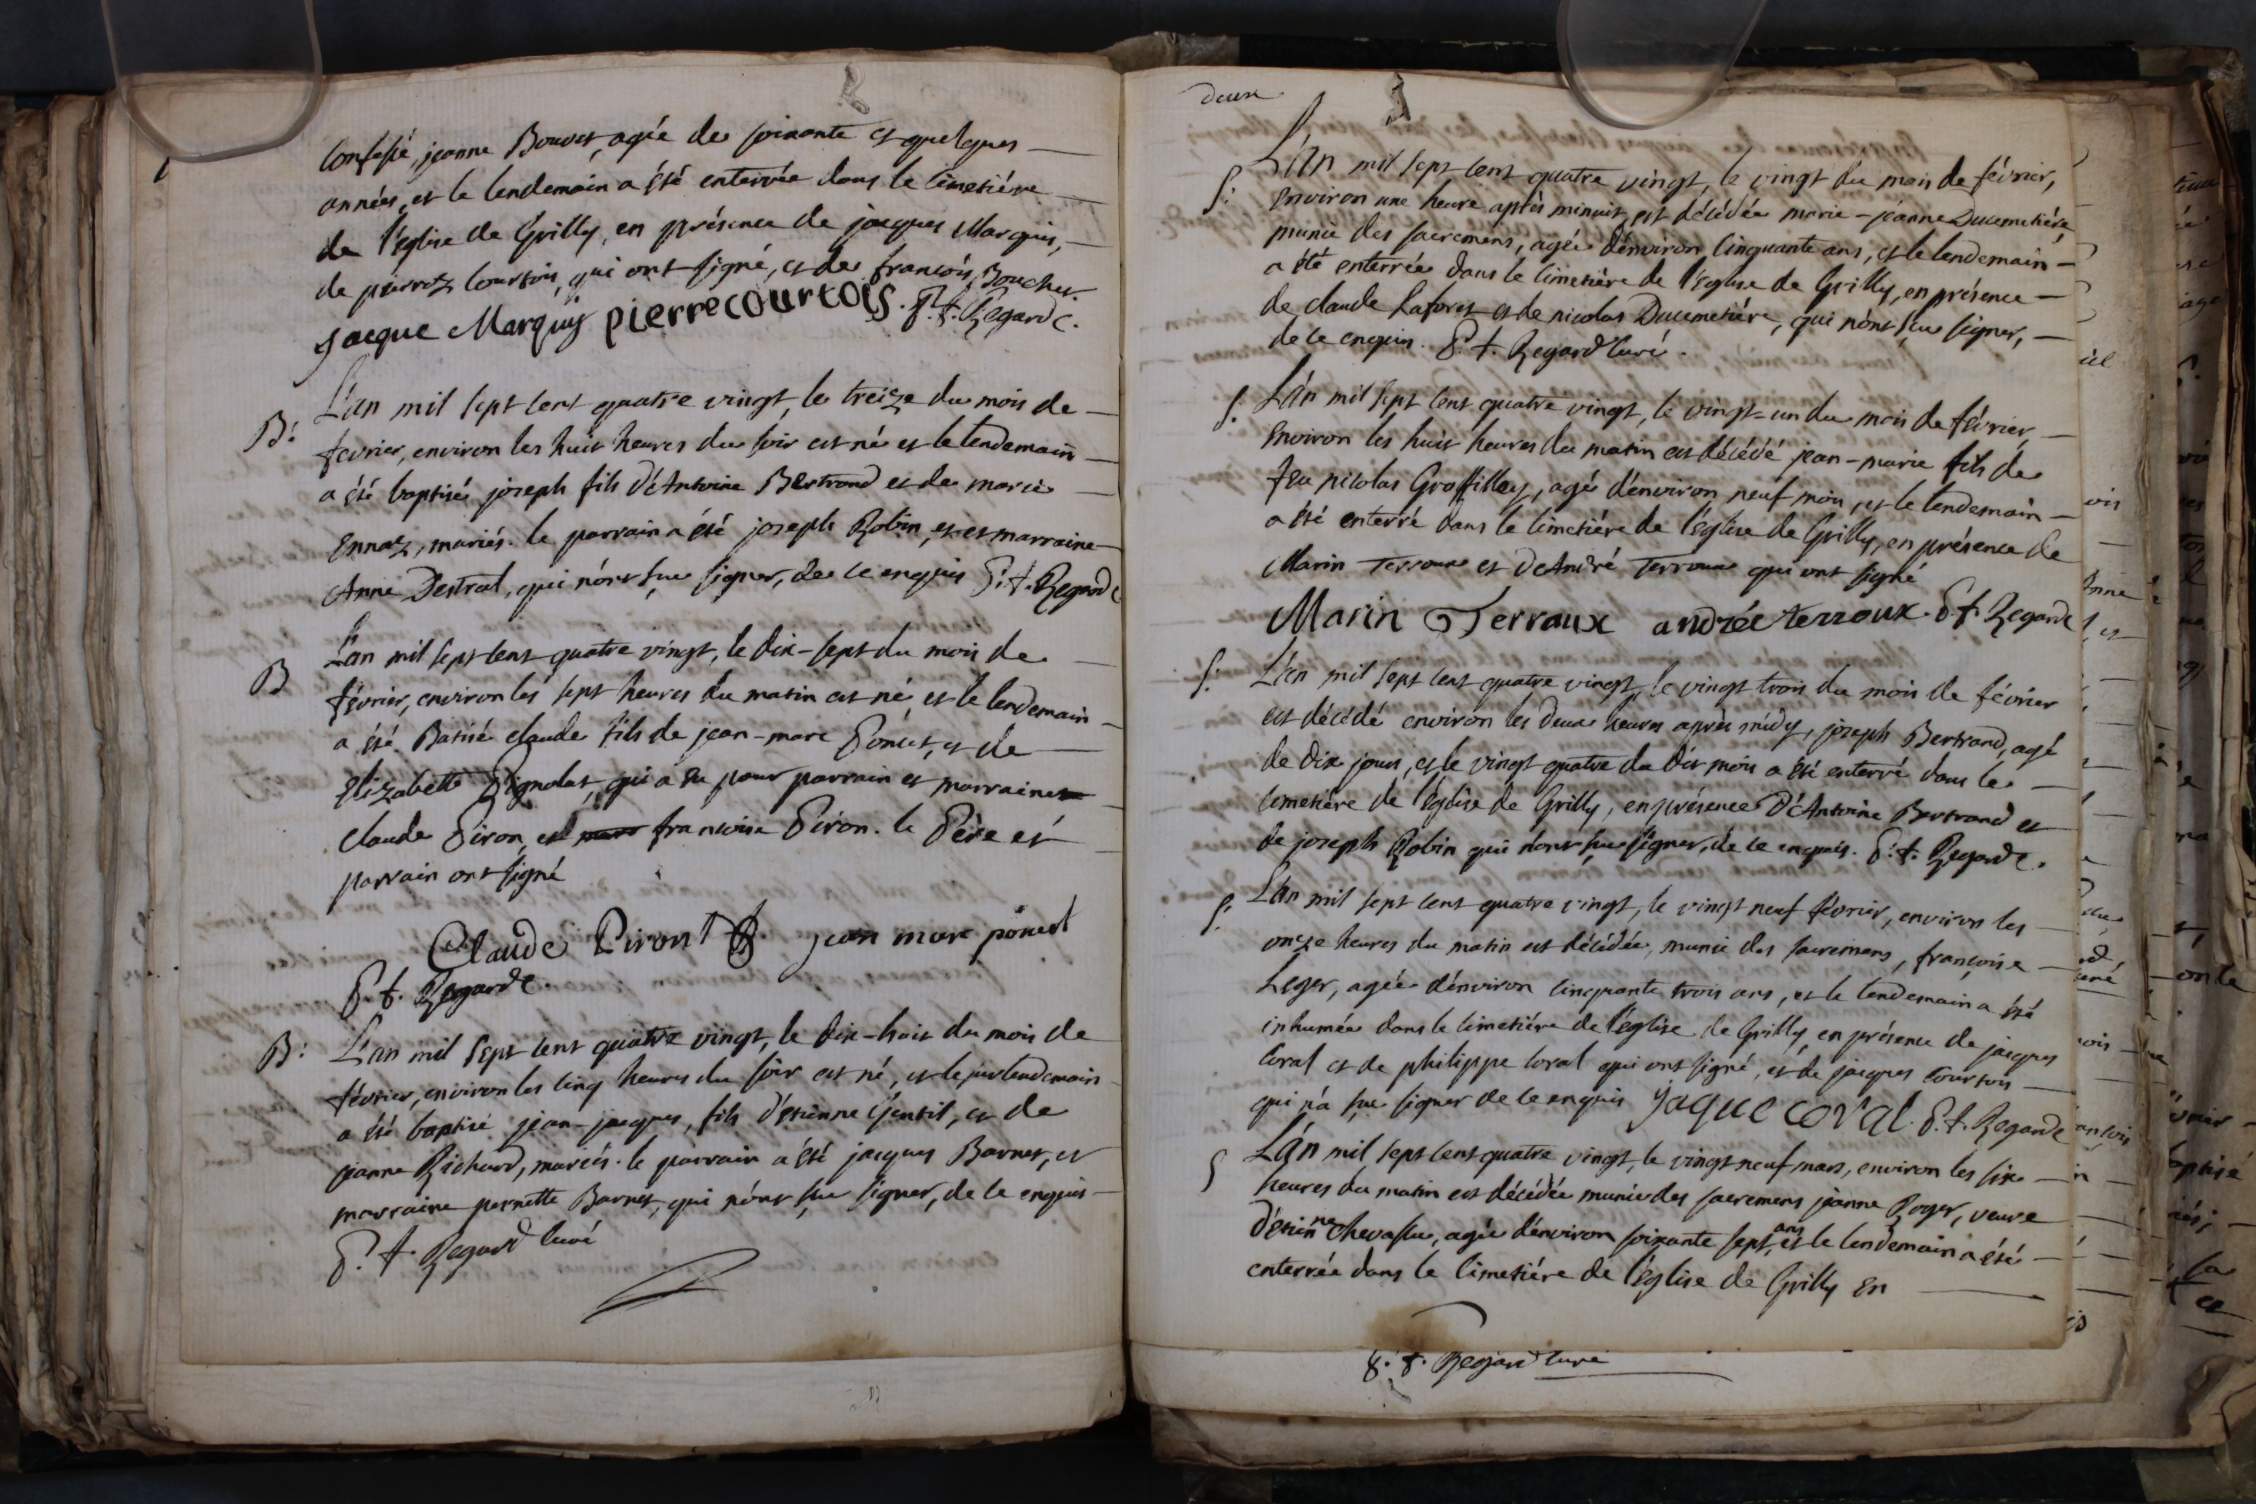 confessé, jeanne Bouvet, agée de soixante et quelques
années, et le lendemain a été enterrée dans le cimetiére
de l'église de Grilly, en présence de jacques Marquis,
de pierre Courtois, qui ont signé, et de françois Bouchet.
jacque Marquis pierre courtois. P. f. Regard c.
B: L'an mil sept cent quatre vingt, le treize du mois de
février, environ les huit heures du soir est né et le lendemain
a été baptisé joseph fils d'Antoine Bertrand et de marie
Ennaz, mariés. le parrain a été joseph Robin, et et marraine
Anne Destral, qui n'ont sçu signer, de ce enquis P. f. Regard c
B L'an mil sept cent quatre vingt, le dix-sept du mois de
février, environ les sept heures du matin est né et le lendemain
a été Batisé claude fils de jean-marc Poncet, et de
Elizabette Pignolat, qui a eu pour parrain et marraine
claude Piron, et françoise Piron. le Père et
parrain ont signé
Claude Piront jean marc ponest
P. f. Regard c.
B: L'an mil sept cent quatre vingt, le dix-huit du mois de
février, environ les cinq heures du soir est né, et le jur lendemain
a été baptisé jean-jacques, fils d'etienne Gentil, et de
jeanne Richard, mariés. le parrain a été jacques Barnet, et
marraine pernette Barnet, qui n'ont sçu signer, de ce enquis
P. f. Regard curé
deux
S: L'an mil sept cent quatre vingt, le vingt du mois de février,
environ une heure après minuit est décédée marie-jeanne Ducimetiére
munie des sacremens, agée d'environ cinquante ans, et le lendemain
a été enterrée dans le cimetiére de l'église de Grilly, en présence
de claude Laforet et de nicolas Ducimetiére, qui n'ont sçu signer,
de ce enquis. P. f. Regard curé.
S. L'an mil sept cent quatre vingt, le vingt-un du mois de février,
environ les huit heures du matin est décédé jean-marie fils de
feu nicolas Grosfilley, agé d'environ neuf mois, et le lendemain
a été enterré dans le cimetiére de l'église de Grilly, en présence de
Marin Terroux et d'André Terroux qui ont signé
Marin Terraux andrée terroux. P. f. Regard c
S: L'an mil sept cent quatre vingt, le vingt trois du mois de février
est décédé environ les deux heures après midy, joseph Bertrand, agé
de dix jours, et le vingt quatre du dit mois a été enterré dans le
cimetiére de l'église de Grilly, en présence d'Antoine Bertrand et
de joseph Robin qui n'ont sçu signer, de ce enquis. P. f. Regard c.
S: L'an mil sept cent quatre vingt, le vingt neuf février, environ les
onze heures du matin est décédée, munie des sacremens, françoise
Leger, agée d'environ cinquante trois ans, et le lendemain a été
inhumée dans le cimetiére de l'église de Grilly, en présence de jacques
Coral et de philippe Coral qui ont signé, et de jacques Courtois
qui n'a sçu signer de ce enquis jaque coral. P. f. Regard c
S L'an mil sept cent quatre vingt, le vingt neuf mars, environ les six
heures du matin est décédée munie des sacremens jeanne Roger, veuve
d'etienne Chevallu, agée d'environ soixante sept ans, et le lendemain a été
enterrée dans le cimetiére de l'église de Grilly en
P. f. Regard curé